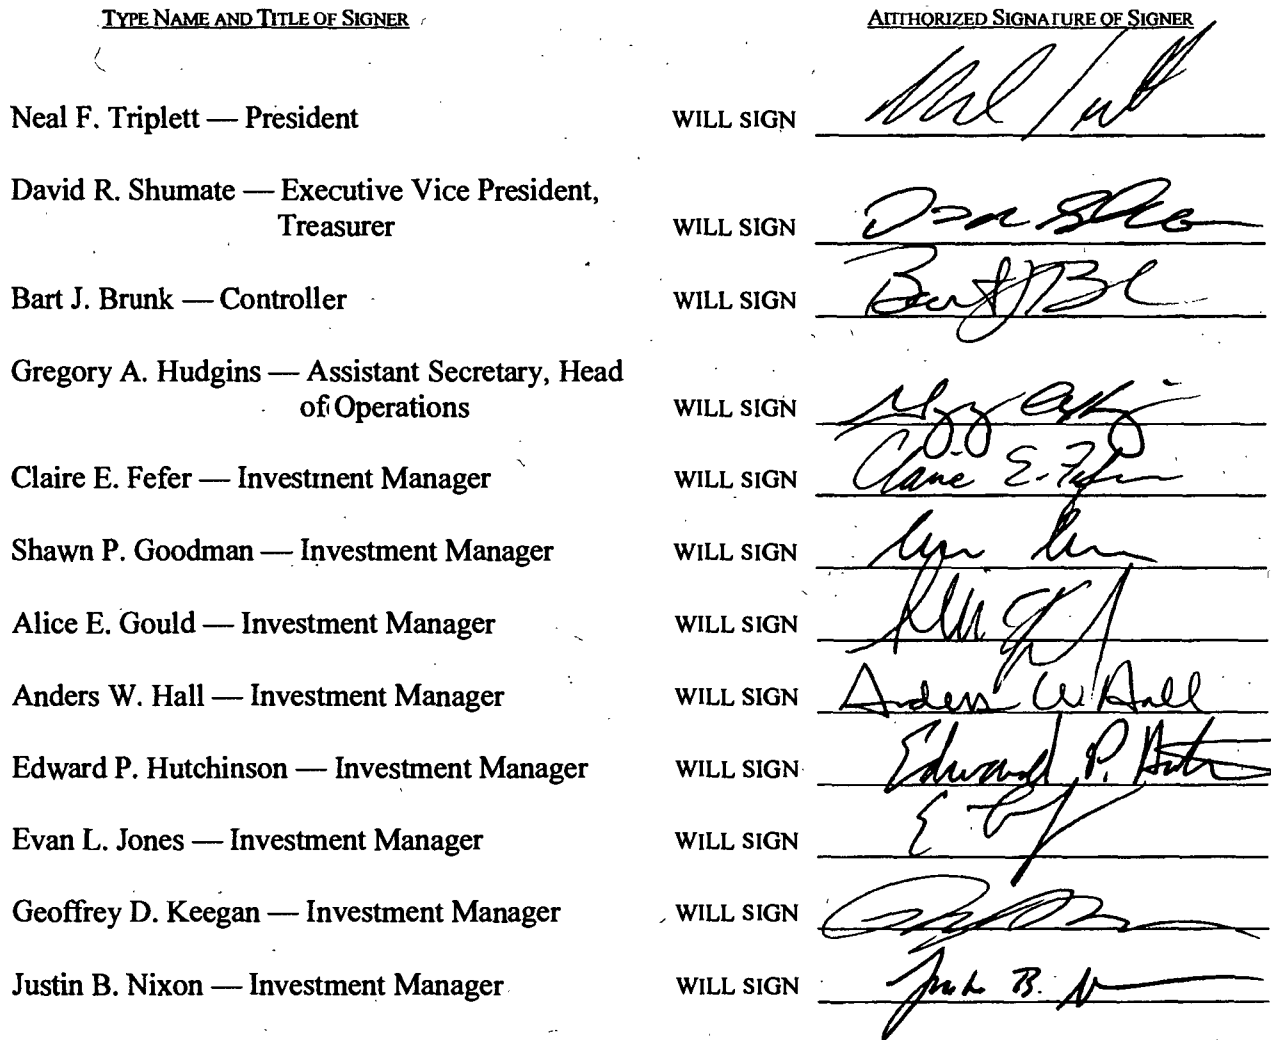 TYPE NAME AND TITLE OF SIGNER AUTHORIZED SIGNATURE OF SIGNER
Neal F. Triplett — President WILL SIGN
David R. Shumate — Executive Vice President,
Treasurer WILL SIGN
Bart J. Brunk — Controller WILL SIGN Bart J B
Gregory A. Hudgins — Assistant Secretary, Head
of Operations WILL SIGN
Claire E. Fefer — Investment Manager WILL SIGN Claire E. Fefer
Shawn P. Goodman — Investment Manager WILL SIGN
Alice E. Gould — Investment Manager WILL SIGN
Anders W. Hall — Investment Manager WILL SIGN Anders W. Hall
Edward P. Hutchinson — Investment Manager WILL SIGN Edward P. Hut
Evan L. Jones — Investment Manager WILL SIGN
Geoffrey D. Keegan — Investment Manager WILL SIGN
Justin B. Nixon — Investment Manager WILL SIGN